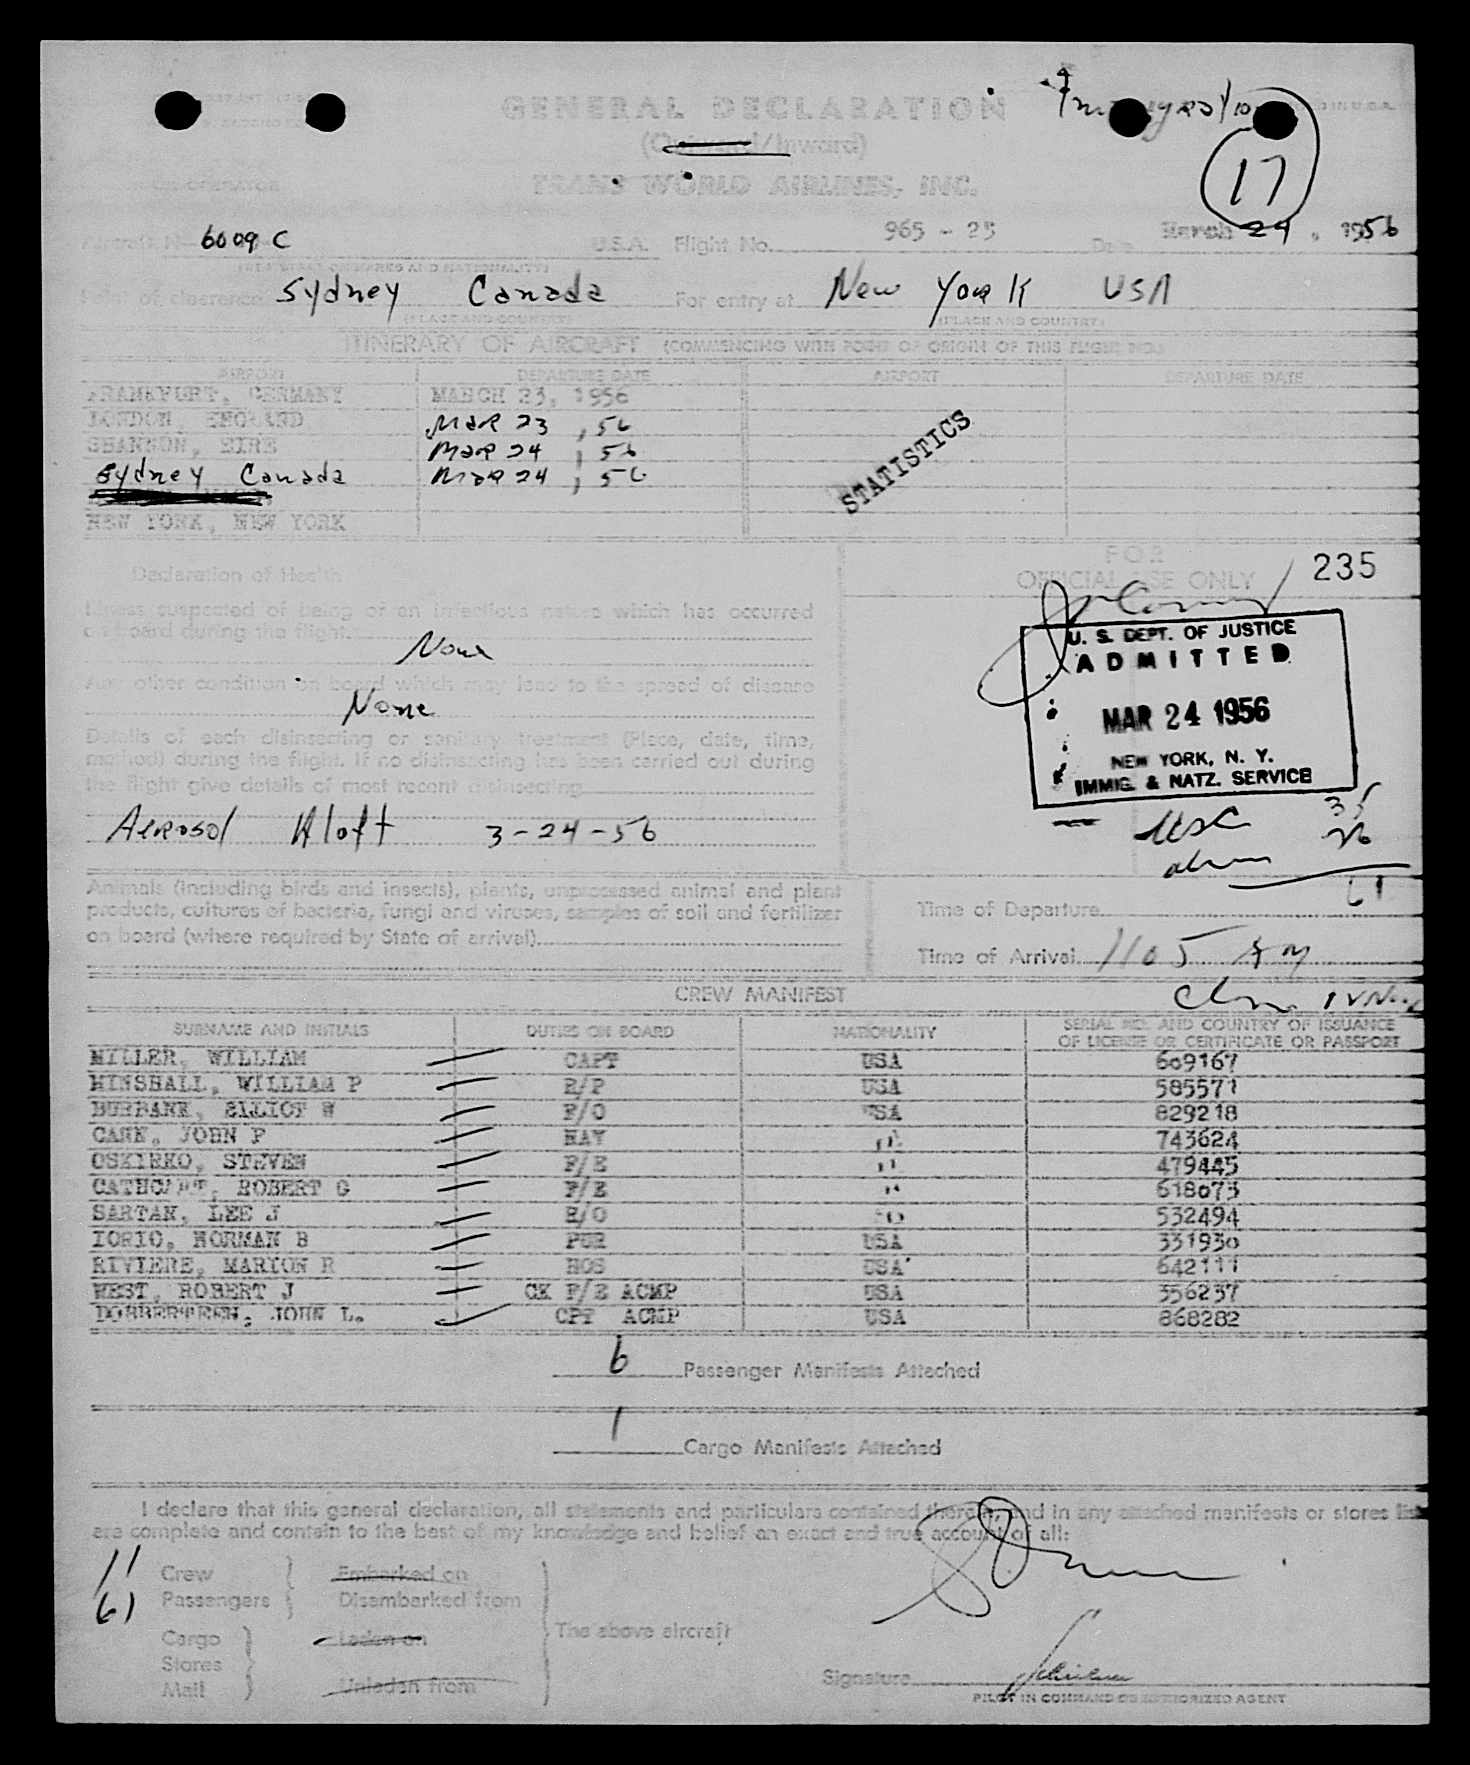 GENERAL DECLARATION
(Outward/Inward)
17
TRANS WORLD AIRLINES, INC.
OPERATOR
Aircraft N 6009 C U.S.A. Flight No. 965 - 23 Date March 24, 1956
(REGISTRATION MARKS AND NATIONALITY)
Point of clearence Sydney Canada For entry at New York USA
(PLACE AND COUNTRY) (PLACE AND COUNTRY)
ITINERARY OF AIRCRAFT (COMMENCING WITH POINT OF ORIGIN OF THIS FLIGHT NO.)
AIRPORT DEPARTURE DATE AIRPORT DEPARTURE DATE
FRANKFURT, GERMANY MARCH 23, 1956
LONDON, ENGLAND MAR 23, 56
SHANNON, EIRE MAR 24, 56
Sydney Canada MAR 24, 56
NEW YORK, NEW YORK
STATISTICS
FOR
OFFICIAL USE ONLY
235
Declaration of Health
Illness suspected of being of an infectious nature which has occurred
on board during the flight.
None
Any other condition on board which may lead to the spread of disease
None
Details of each disinsecting or sanitary treatment (Place, date, time,
method) during the flight. If no disinsecting has been carried out during
the flight give details of most recent disinsecting
Aerosol Aloft 3-24-56
U. S. DEPT. OF JUSTICE
ADMITTED
MAR 24 1956
NEW YORK, N. Y.
IMMIG. & NATZ. SERVICE
USC 35
alien 26
61
Animals (including birds and insects), plants, unprocessed animal and plant
products, cultures of bacteria, fungi and viruses, samples of soil and fertilizer
on board (where required by State of arrival)
Time of Departure
Time of Arrival 1105 AM
CREW MANIFEST
SURNAME AND INITIALS DUTIES ON BOARD NATIONALITY SERIAL NO. AND COUNTRY OF ISSUANCE
OF LICENSE OR CERTIFICATE OR PASSPORT
MILLER, WILLIAM CAPT USA 609167
MINSHALL, WILLIAM P R/P USA 585571
BURBANK, ELLIOT W F/O USA 829218
CARR, JOHN P NAV " 743624
OSKIRKO, STEVEN F/E " 479445
CATHCART, ROBERT G F/E " 618073
SARTAN, LEE J R/O 532494
IORIO, NORMAN B PUR USA 331930
RIVIERE, MARION R HOS USA 642111
WEST, ROBERT J CK F/E ACMP USA 356237
DOBBERTEEN, JOHN L. CPT ACMP USA 868282
6 Passenger Manifests Attached
1 Cargo Manifests Attached
I declare that this general declaration, all statements and particulars contained therein, and in any attached manifests or stores list
are complete and contain to the best of my knowledge and belief an exact and true account of all:
11 Crew Embarked on
61 Passengers Disembarked from
The above aircraft
Cargo Laden on
Stores
Mail Unladen from
Signature
PILOT IN COMMAND OR AUTHORIZED AGENT